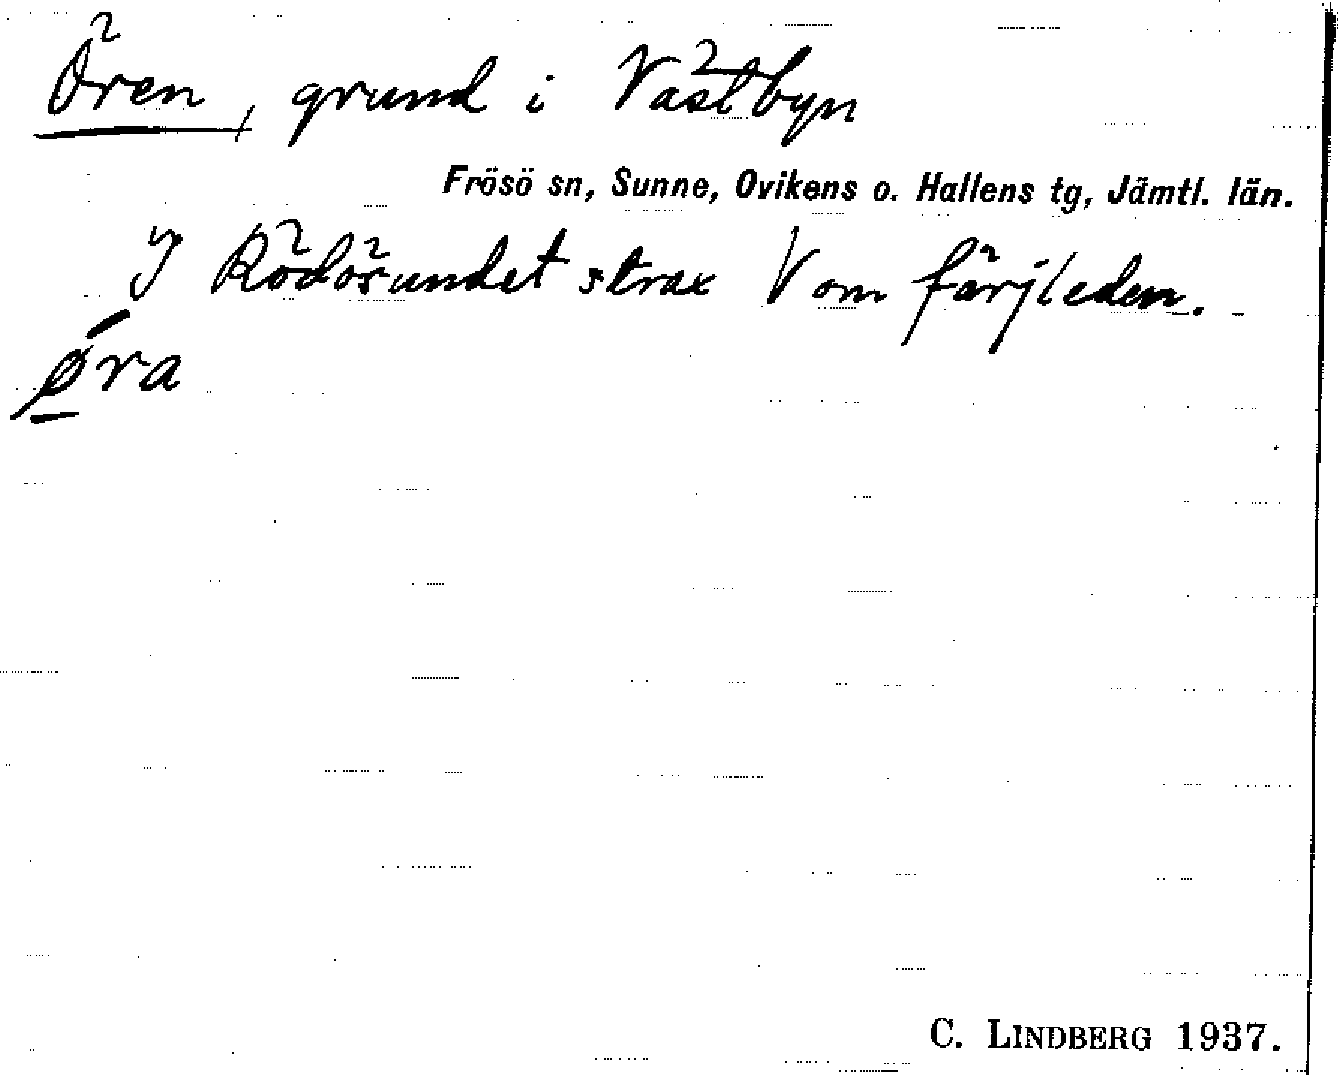 Ören, grund i Västbyn
Frösö sn, Sunne, Ovikens o. Hallens tg, Jämtl. län.
I Rödösundet strax V om färjleden.
ǿra
C. LINDBERG 1937.